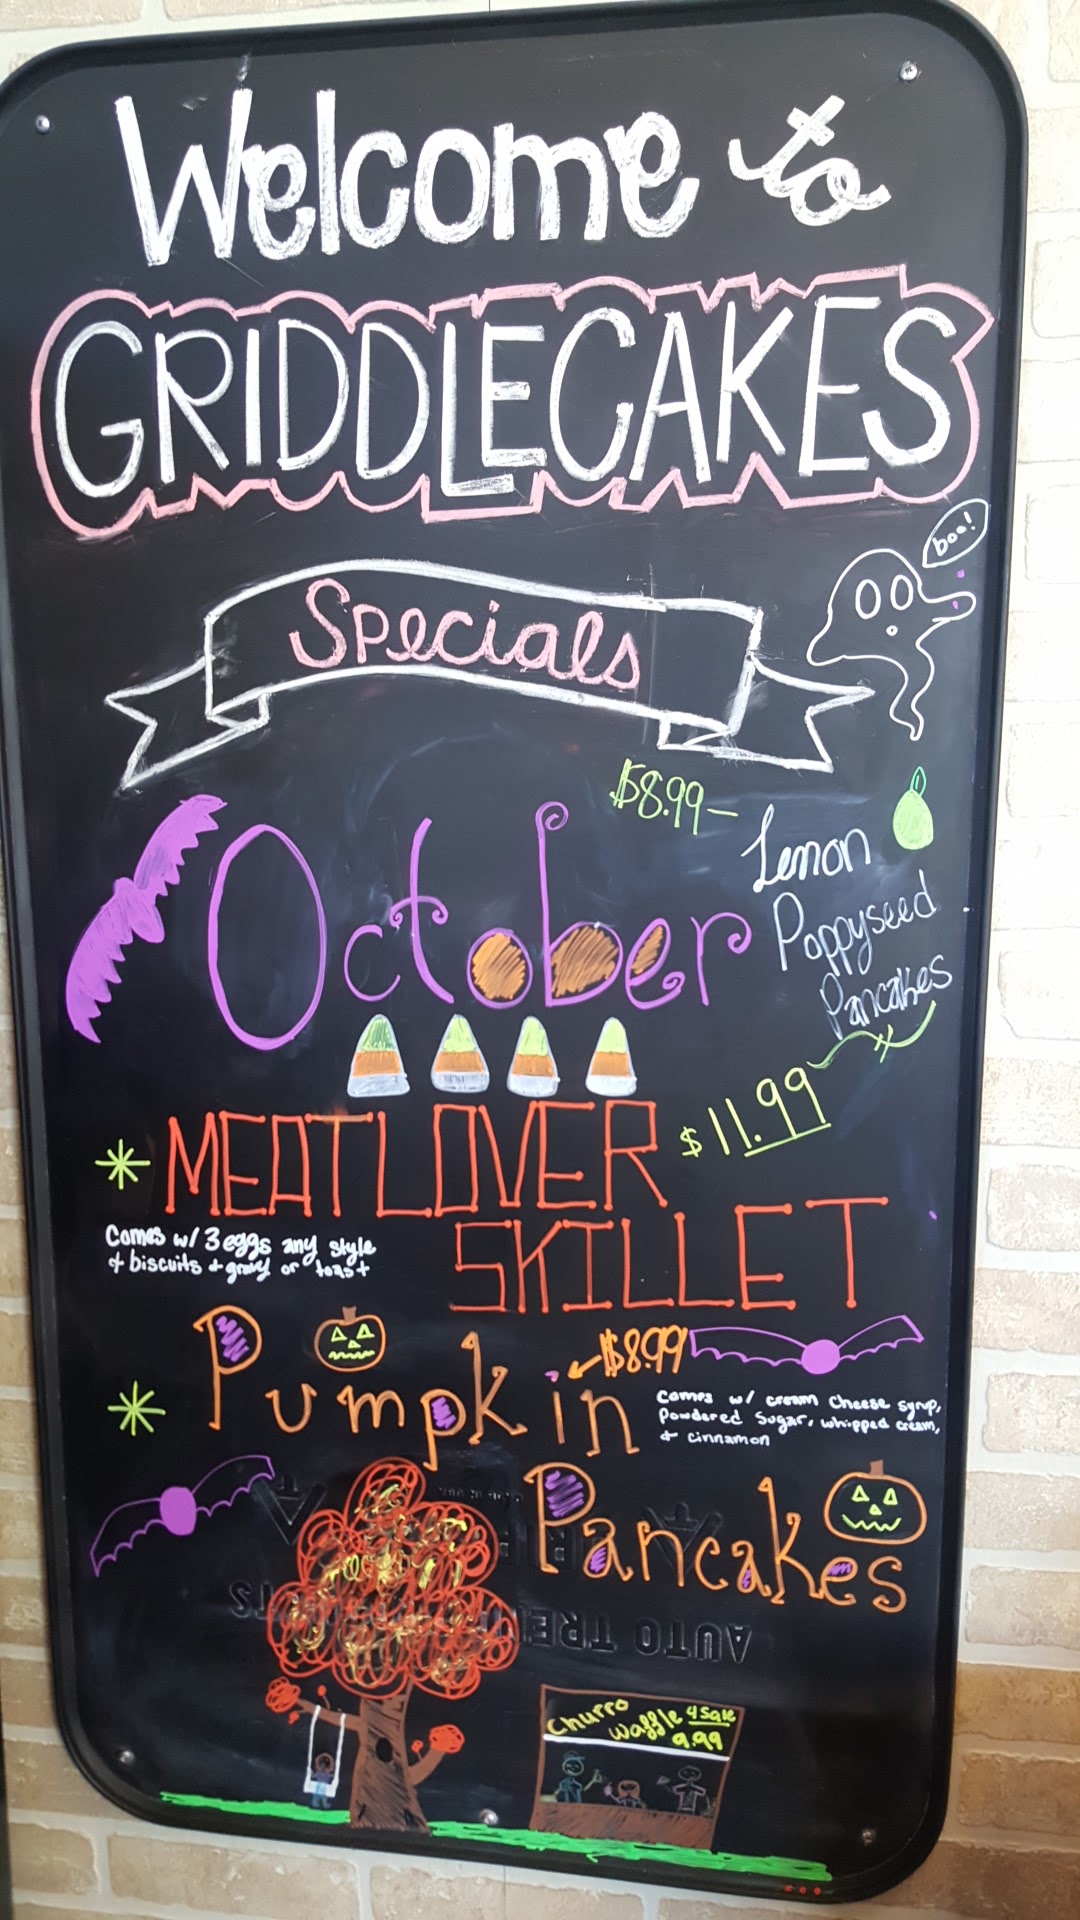 Welcome to
GRIDDLECAKES
boo!
Specials
October
$8.99 —
Lemon
Poppyseed
Pancakes
MEATLOVER $11.99
SKILLET
Comes w/ 3 eggs any style
+ biscuits + gravy or toast
Pumpkin
$8.99
Comes w/ cream cheese syrup,
Powdered Sugar, whipped cream,
+ cinnamon
Pancakes
AUTO TRE
Churro
Waffle 4 Sale
9.99